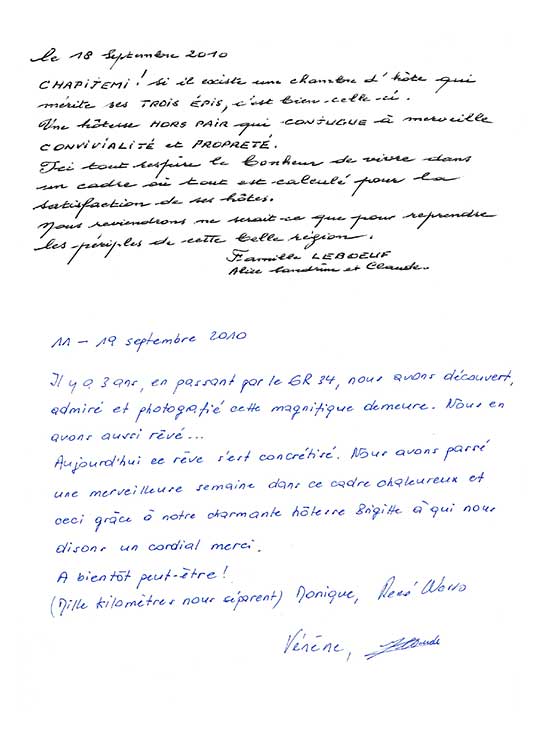 le 18 Septembre 2010
CHAPITEMI! si il existe une chambre d'hôte qui
mérite ses TROIS ÉPIS, c'est bien celle-ci.
Une hôtesse HORS PAIR qui CONJUGUE à merveille
CONVIVIALITÉ et PROPRETÉ.
Ici tout respire le bonheur de vivre dans
un cadre où tout est calculé pour la
satisfaction de ses hôtes.
Nous reviendrons ne serait-ce que pour reprendre
les périples de cette belle région.
Famille LEBOEUF
Alice Sandrine et Claude.
11 - 19 septembre 2010
Il y a 3 ans, en passant par le GR 34, nous avons découvert,
admiré et photografié cette magnifique demeure. Nous en
avons aussi rêvé...
Aujourd'hui ce rêve s'est concrétisé. Nous avons passé
une merveilleuse semaine dans ce cadre chaleureux et
ceci grâce à notre charmante hôtesse Brigitte à qui nous
disons un cordial merci.
A bientôt peut-être!
(Mille kilomètres nous séparent) Monique, René
Vérène,